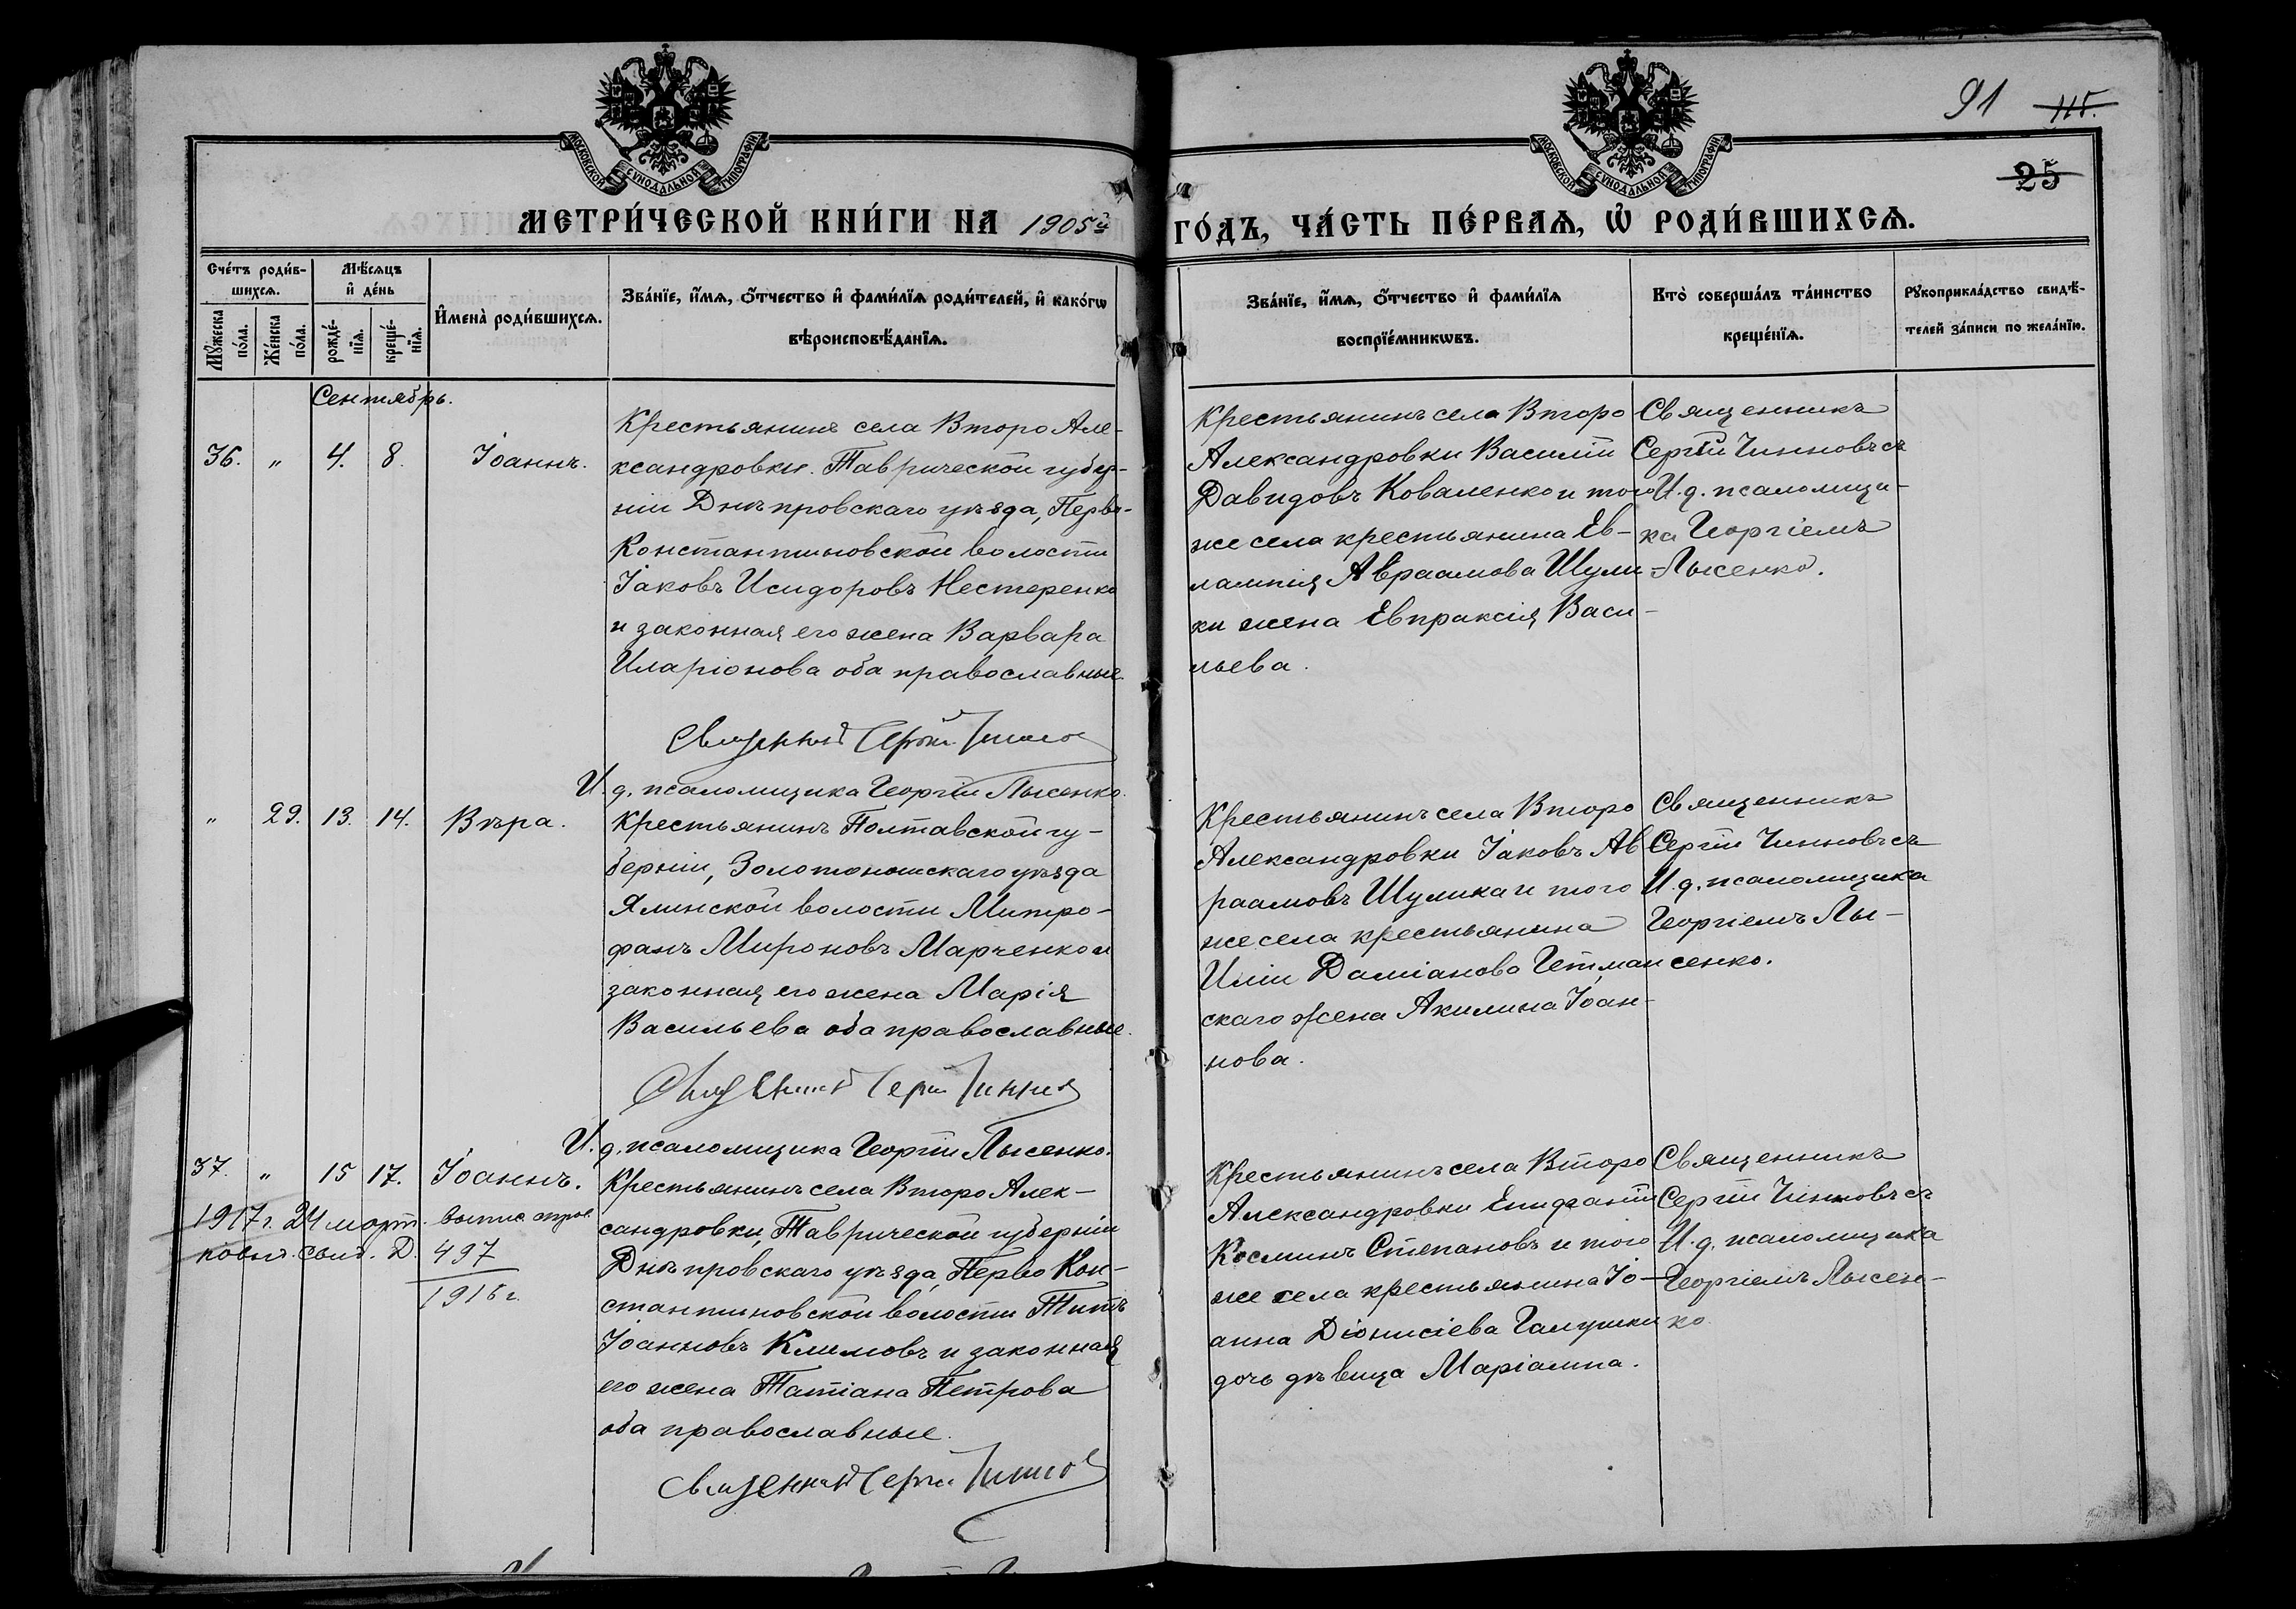 91 115.
25
МОСКОВСКОЙ СѴНОДАЛЬНОЙ ТИПОГРАФІИ
МОСКОВСКОЙ СѴНОДАЛЬНОЙ ТИПОГРАФІИ
МЕТРИ́ЧЕСКОЙ КНИ́ГИ НА 1905й ГО́ДЪ, ЧА́СТЬ ПЕ́РВАЯ, Ѡ҆ РОДИ́ВШИХСѦ.
Сче́тъ роди́в-
шихсѧ.
Мꙋ́жеска по́ла.
Же́нска по́ла.
Мѣ́сѧцъ
и҆ де́нь
рожде́-
нїѧ.
креще́-
нїѧ.
И҆мена̀ роди́вшихсѧ.
Зва́нїе, и҆́мѧ, ѻ҆́тчество и҆ фами́лїѧ роди́телей, и҆ како́гѡ
вѣроисповѣ́данїѧ.
Зва́нїе, и҆́мѧ, ѻ҆́тчество и҆ фами́лїѧ
воспрїе́мникѡвъ.
Кто̀ соверша́лъ та́инство
креще́нїѧ.
Рꙋкоприкла́дство свидѣ́-
телей за́писи по жела́нїю.
Сентябрь.
36. „ 4. 8. Іоаннъ.
Крестьянинъ села Второ Але-
ксандровки. Таврической губер-
ніи Днѣпровскаго уѣзда, Перво-
Константиновской волости
Іаковъ Исидоровъ Нестеренко
и законная его жена Варвара
Иларіонова оба православные.
Священник Сергій Чинновъ
И. д. псаломщика Георгій Лысенко.
Крестьянинъ села Второ
Александровки Василій
Давидовъ Коваленко и того
же села крестьянина Ев-
лампія Авраамова Шули-
ки жена Евпраксія Васи-
льева.
Священникъ
Сергій Чинновъ съ
И. д. псаломщи-
ка Георгіемъ
Лысенко.
„ 29. 13. 14. Вѣра.
Крестьянинъ Полтавской гу-
берніи, Золотоношскаго уѣзда
Ялинской волости Митро-
фанъ Мироновъ Марченко и
законная его жена Марія
Васильева оба православные.
Священник Сергій Чинновъ
И. д. псаломщика Георгій Лысенко.
Крестьянинъ села Второ
Александровки Іаковъ Ав
раамовъ Шулика и того
же села крестьянина
Иліи Даміанова Гетман
скаго жена Акилина Іоан-
нова.
Священникъ
Сергій Чинновъ съ
И. д. псаломщика
Георгіемъ Лы-
сенко.
37. „ 15 17. Іоаннъ.
1917 г. 24 март.
свид. D. 497
1916 г.
Крестьянинъ села Второ Алек-
сандровки, Таврической губерніи
Днѣпровскаго уѣзда, Перво Кон-
стантиновской волости Титъ
Іоанновъ Климовъ и законная
его жена Татіана Петрова
оба православные.
Священник Сергій Чинновъ
Крестьянинъ села Второ
Александровки Епифаній
Косминъ Степановъ и того
же села крестьянина Іо-
анна Діонисіева Галушки
дочь дѣвица Маріамна.
Священникъ
Сергій Чинновъ съ
И. д. псаломщика
Георгіемъ Лысен-
ко.